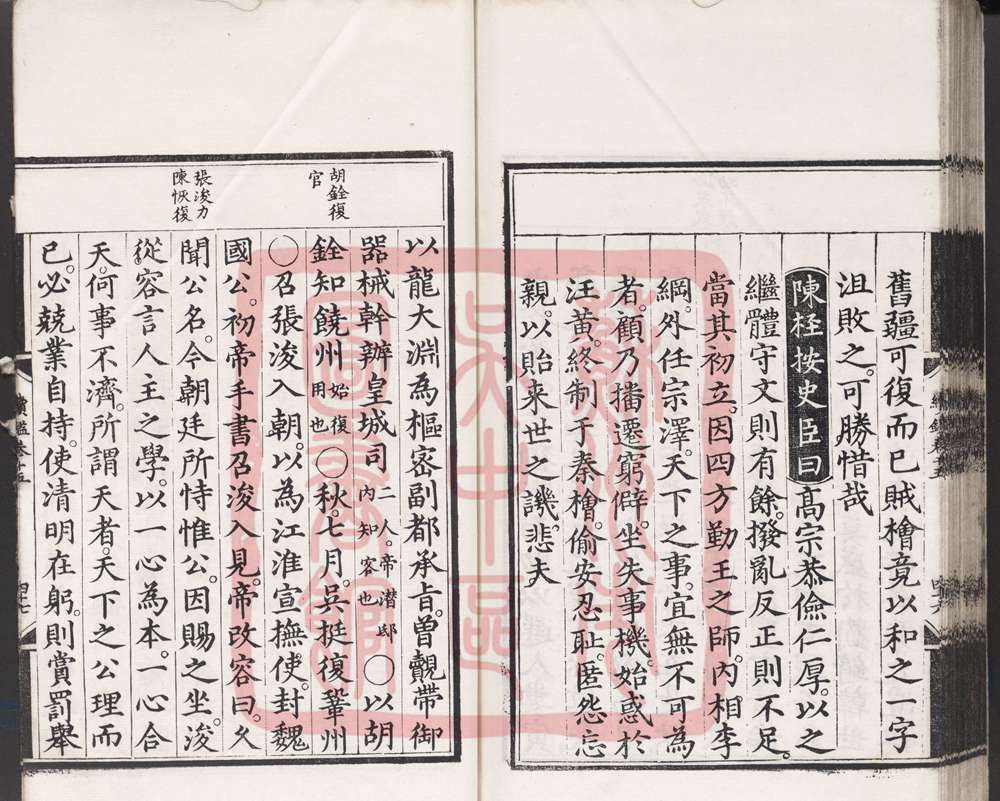 舊疆可復而已賊檜竟以和之一字
沮敗之可勝惜哉
陳桱按史臣曰高宗恭儉仁厚以之
繼體守文則有餘撥亂反正則不足
當其初立因四方勤王之師內相李
綱外任宗澤天下之事宜無不可為
者顧乃播遷窮僻坐失事機始惑於
汪黃終制于秦檜偷安忍耻匿怨忘
親以貽来世之譏悲夫
胡銓復
官
張浚力
陳恢復
以龍大淵為樞密副都承旨曾覿帶御
器械幹辦皇城司二人帝潛邸內知客也〇以胡
銓知饒州始復用也〇秋七月吳挺復鞏州
〇召張浚入朝以為江淮宣撫使封魏
國公初帝手書召浚入見帝改容曰久
聞公名今朝廷所恃惟公因賜之坐浚
從容言人主之學以一心為本一心合
天何事不濟所謂天者天下之公理而
已必兢業自持使清明在躬則賞罰舉